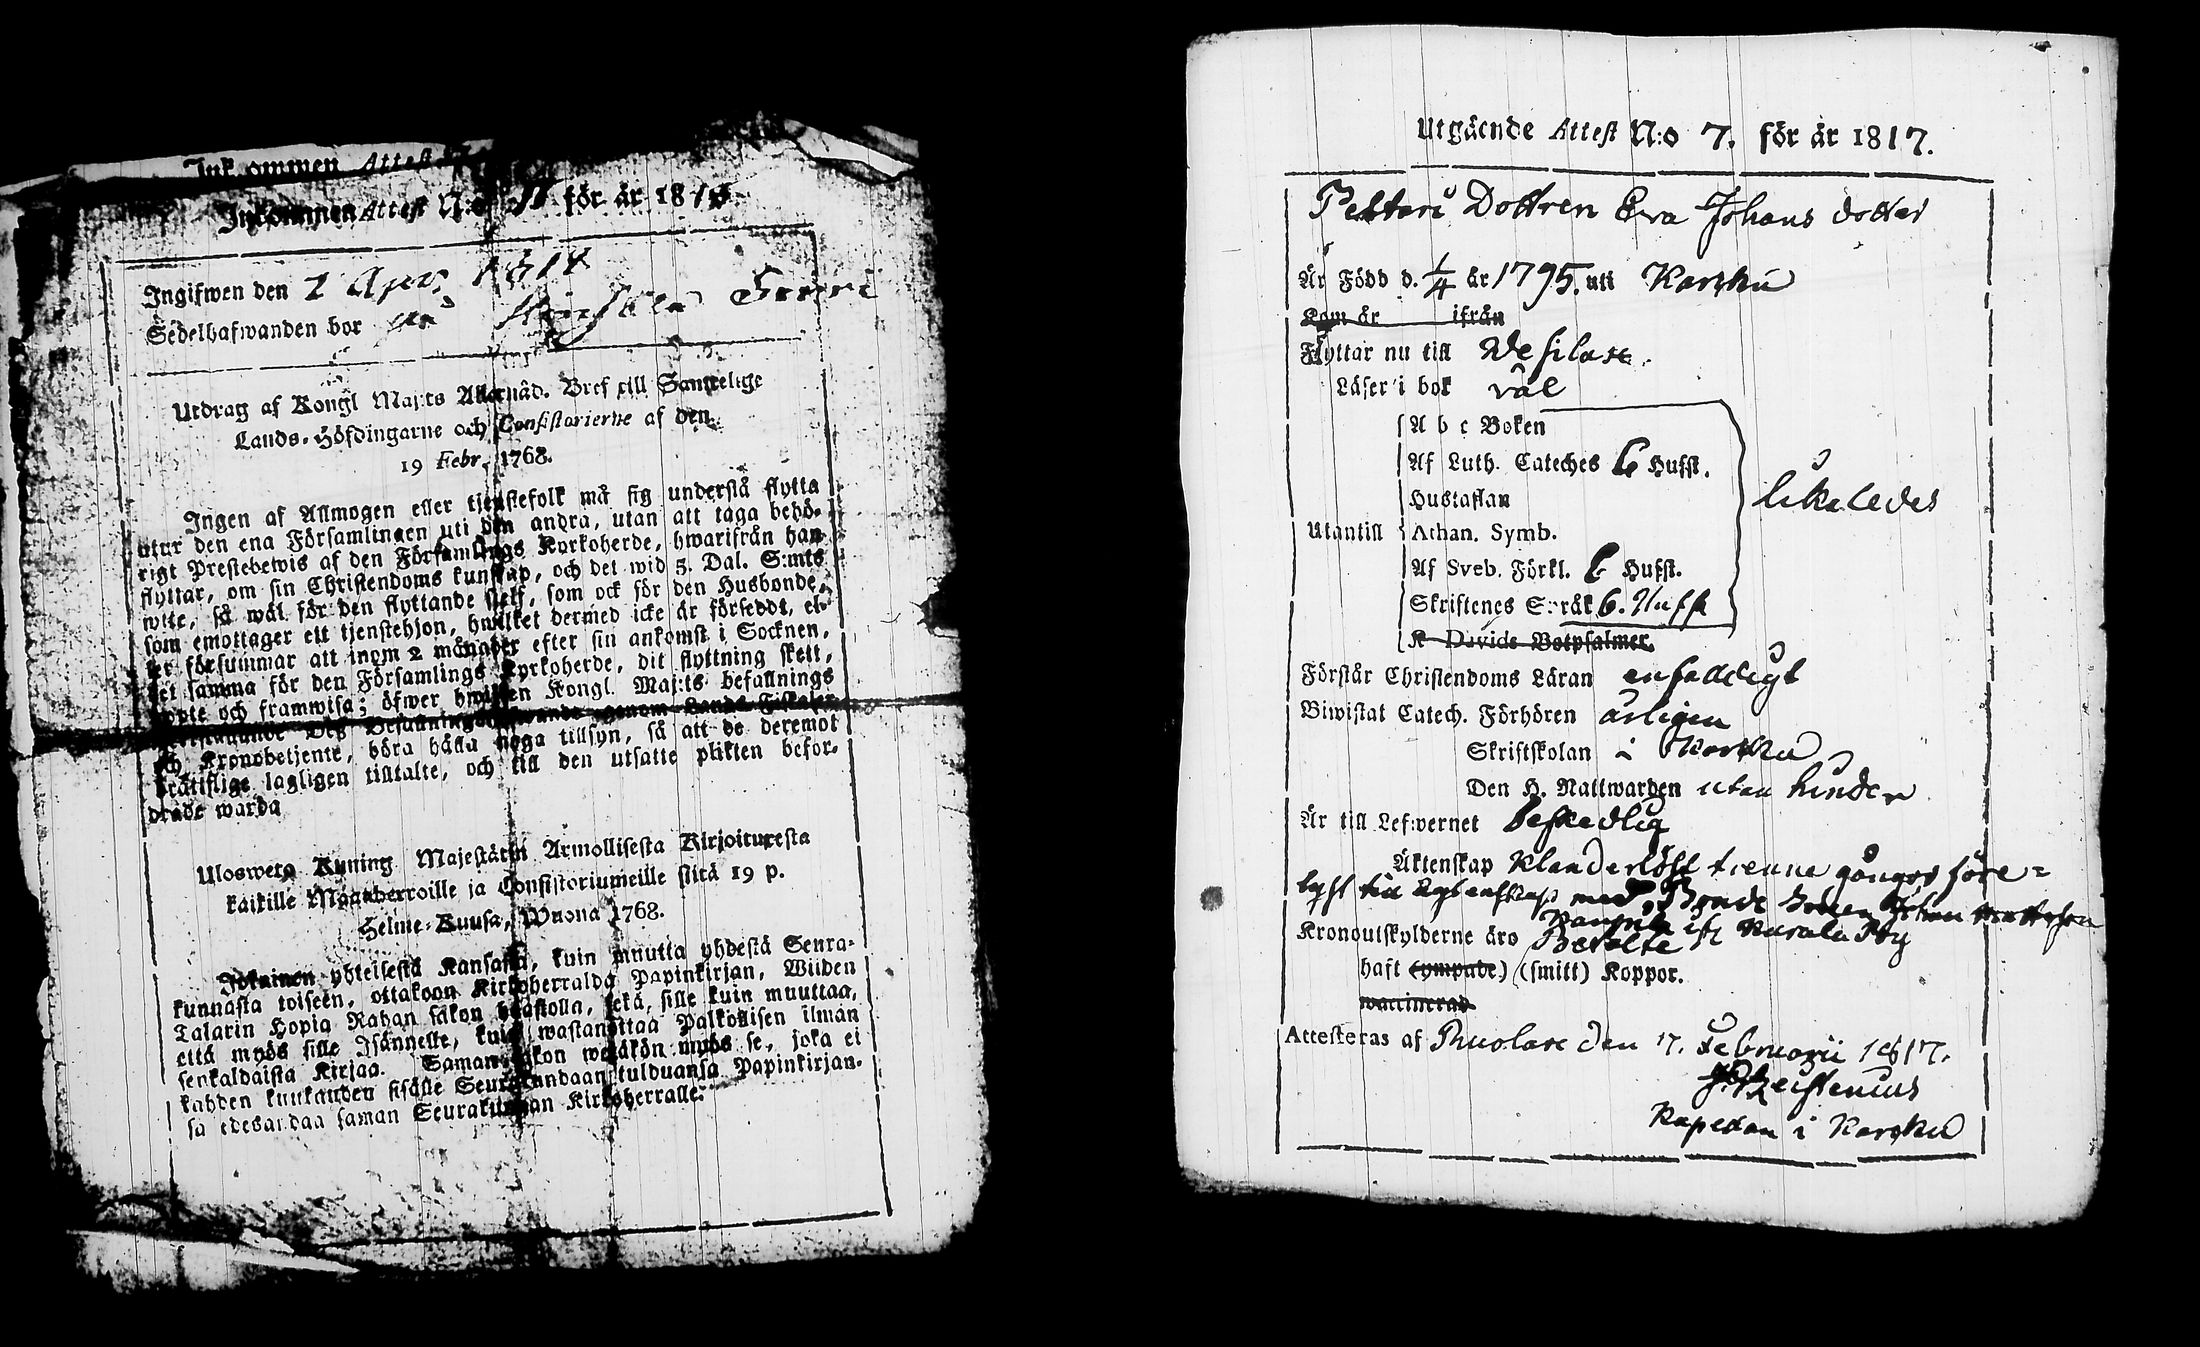 Inkommen Attest
Inkommen Attest N:o 11 för år 181
Ingifwen den 2 Apr. 181
Sedelhafwanden bor
Utdrag af Kongl Maj:ts Allernåd. Bref till Samtelige
Lands-Höfdingarne och Consistorierne af den
19 Febr. 1768.
Ingen af Allmogen eller tjenstefolk må sig understå flytta
utur den ena Församlingen uti den andra, utan att taga behö-
rigt Prestebewis af den Församlings Kyrkoherde, hwarifrån han
flyttar, om sin Christendoms kunskap, och det wid 5. Dal. S:mts
wite, så wäl för den flyttande sielf, som ock för den Husbonde,
som emottager ett tjenstehjon, hwilket dermed icke är försedt, el-
ler försummar att inom 2 månader efter sin ankomst i Socknen,
det samma för den Församlings Kyrkoherde, dit flyttning skett,
opte och framwisa; öfwer hwilken Kongl. Maj:ts befallnings
genom Lands Fiskaler
och Kronobetjente, böra hålla noga tillsyn, så att de deremot
brättslige lagligen tilltalte, och till den utsatte plikten befor-
drade warda
Ulosweto Kuning Majestätin Armollisesta Kirjoituxesta
kaikille Maanherroille ja Consistoriumeille siitä 19 p.
Helme-Kuusa, Wuona 1768.
Jokainen yhteisestä Kansasta, kuin muutta yhdestä Seura-
kunnasta toiseen, ottakoon Kirkoherralda Papinkirjan, Wiiden
Talarin Hopia Rahan sakon haastolla, sekä, sille kuin muuttaa,
että myös sille Isännelle, kuin wastanottaa Palkollisen ilman
senkaldaista Kirjaa. Saman sakon wetäkön myös se, joka ei
kahden kuukauden sisälle Seurakundaan tulduansa Papinkirjan-
sa edesandaa saman Seurakunnan Kirkoherralle.
Utgående Attest N:o 7. för år 1817.
Pettari Dottren Eva Johans dotter
Är Född d. 1/4 år 1795. uti Karkku
Kom år ifrån
Flyttar nu till Wesilax.
Läser i bok väl
A b c Boken
Af Luth. Cateches 6 Hufst.
Hustaflan
likaledes
Utantill Athan. Symb.
Af Sveb. Förkl. 6 Hufst.
Skriftenes Språk 6. Hufst
K Davids Botpsalmer.
Förstår Christendoms Läran enfaldigt
Biwistat Catech. Förhören årligen
Skriftskolan i Karkku
Den H. Nattwarden utan hinder
Är till Lefwernet beskedlig
Äktenskap klanderlöst trenne gångor före-
lyst till ägtenskap med Bonde Sonen Johan Mattsson
Kurala By
Kronoutskylderne äro Betalte
haft (ympade) (smitt) Koppor.
waccinerad
Attesteras af Suolax den 17. Februarii 1817.
Kapellan i Karkku